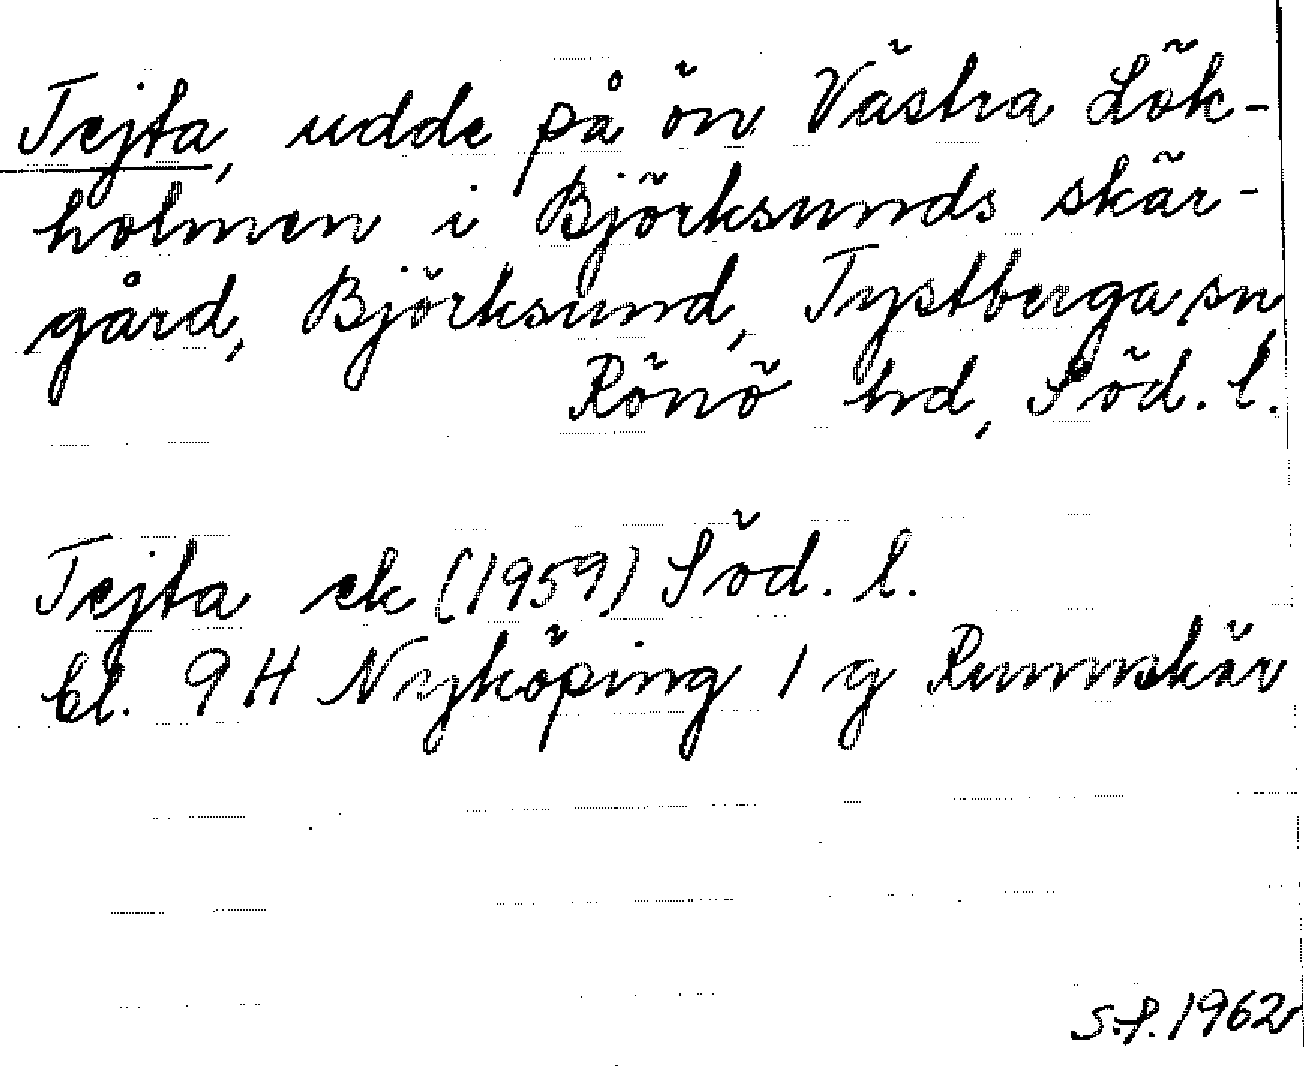 Tejta, udde på ön Västra Lök-
holmen i Björksunds skär-
gård, Björksund, Tystberga sn,
Rönö hd, Söd. l.
Tejta ek (1959) Söd. l.
bl. 9 H Nyköping 1 g Runnskär
S.P. 1962